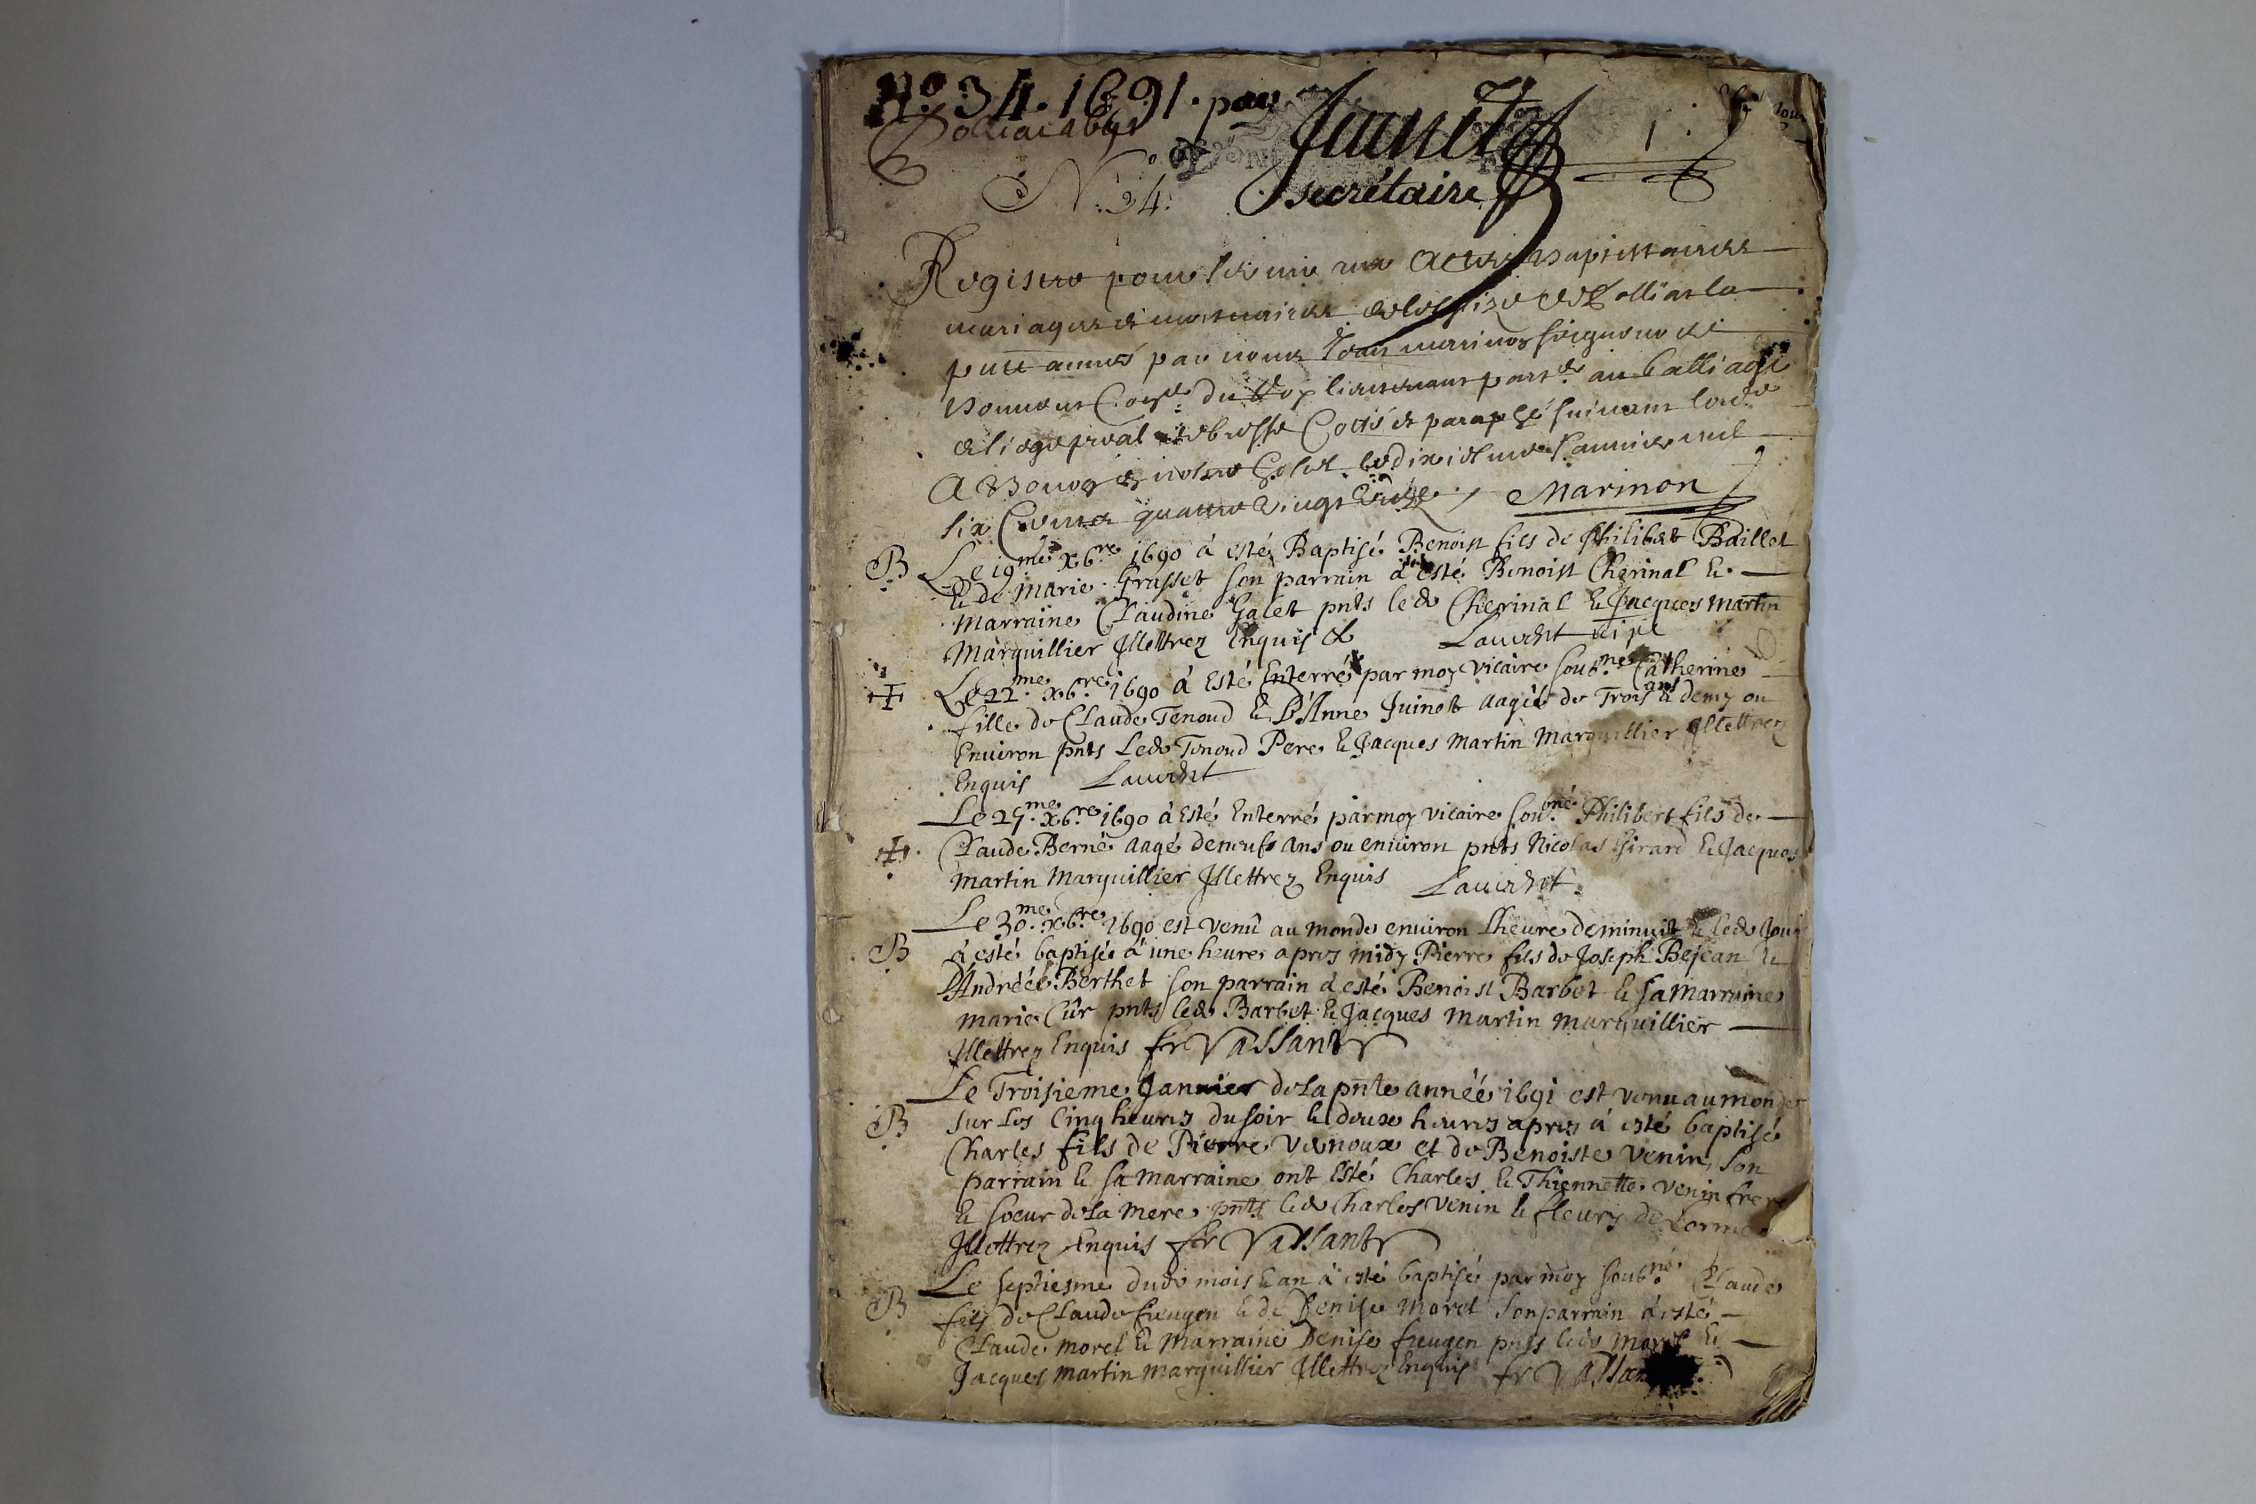 No. 34. 1691. par Juenet
Polliat 1691
N. 34. secrétaire 1.
Registre pour servir aux Actes Baptistaires
mariages et mortuaires de l'esglise de Polliat la
pnte année par nous Jean marinon seigneur de
Conser du Roy lieutenant partr au balliage
et siege psal de bresse Cotté et paraphé suivant lorde
A Bourg en nostre hostel le dixiesme Januier mil
six Cents quatre vingt unze. Marinon
B Le 19me xbre 1690 à esté Baptisé Benoist fils de Philibert Baillet
& de Marie Grasset son parrain à esté Benoist Cherinal &
Marraine Claudine Galet pnts led Cherinal & Jacques Martin
Marguillier Illettrez Enquis & Laurent
Le 22me xbre 1690 à Esté Enterré par moy vicaire soubné Catherine
fille de Claude Tenoud & D'Anne Juinet aagée de Trois ans & demy ou
Environ pnts Led Tenoud Pere & Jacques Martin Marguillier Illettrez
Enquis Laurent
Le 25me xbre 1690 à Esté Enterré par moy vicaire soubné Philibert fils de
Claude Berné aagé de neuf ans ou enuiron pnts Nicolas Girard & Jacques
Martin Marguillier Illettrez Enquis Laurent
Le 30me xbre 1690 est venû au monde enuiron Lheure de minuit & led Jour
B à esté baptisé à une heure apres midy Pierre fils de Joseph Bejean &
D'Andréée Berthet son parrain à esté Benoist Barbet & sa Marraine
Marie Cûr pnts led Barbet & Jacques Martin Marguillier
Illettrez Enquis fr Vassant
Le Troisieme Januier de la pnte année 1691 est venu au monde
B sur Les Cinq heures du soir & deux heures apres à esté baptisé
Charles fils de Pierre Venoux et de Benoiste Venin Son
parrain & sa Marraine ont Esté Charles & Thiennette Venin frere
& soeur de la Mere pnts led Charles Venin & fleury de Lorme
Illettrez Enquis fr Vassant
Le septiesme dud mois & an à esté baptisé par moy soubné Claude
B fils de Claude freugen & de Denise Morel Son parrain à esté
Claude Morel & Marraine Denise freugen pnts led Morel &
Jacques Martin Marguillier Illettrez Enquis fr Vassan